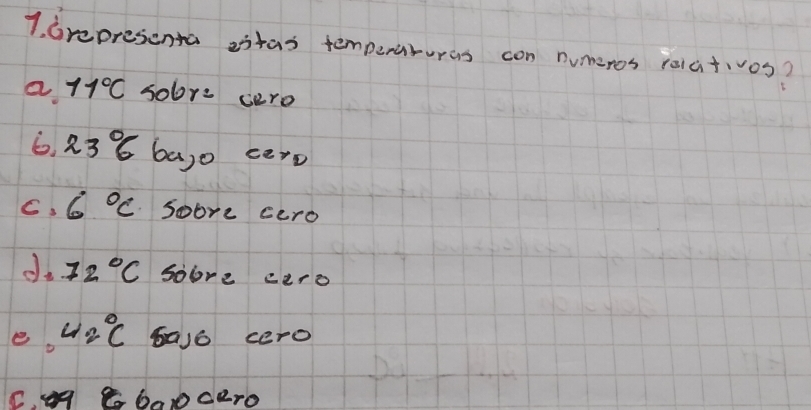 1. Grepresenta estas temperaturas con numeros relativos?
a. 11°C sobre cero
b. 23°C bajo cero
c. 6 °C sobre cero
d. 12°C sobre cero
e. 42°C bajo cero
bajo cero